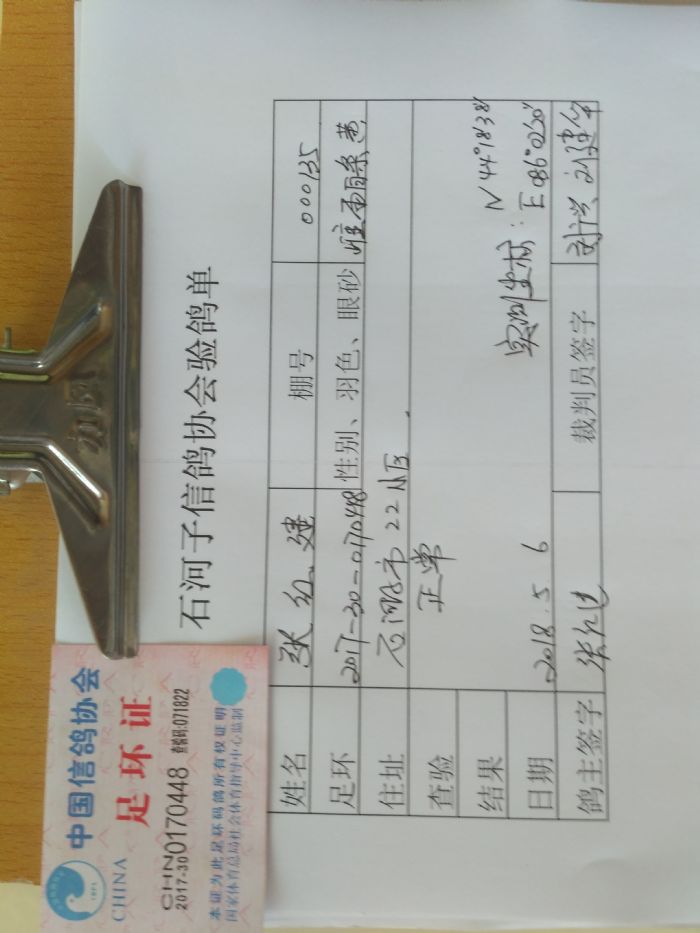 中国信鸽协会
CHINA
足环证
CHN0170448
2017-30
查验码:071822
本证为此足环码鸽所有权证明
国家体育总局社会体育指导中心监制
石河子信鸽协会验鸽单
姓名 张红建 棚号 000135
足环 2017-30-0170448 性别、羽色、眼砂 雌 雨白条 黄
住址 石河子市22小区
查验 正常
结果
实测坐标: N 44°18′38″
日期 2018.5.6 E 086°02′20″
鸽主签字 张红建 裁判员签字